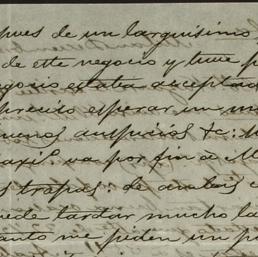 pues de un larguisimo
de este negocio y tuve
negocio estaba aceptado
preciso esperar un
buenos auspicios &c:
va por fin á M
trapas: de ambos
puede tardar mucho la
tanto me piden un